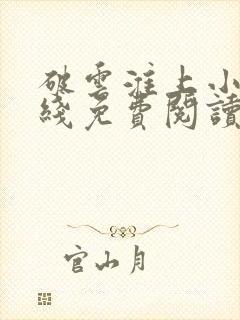 破雲淮上小
綫免費閱讀
官山月